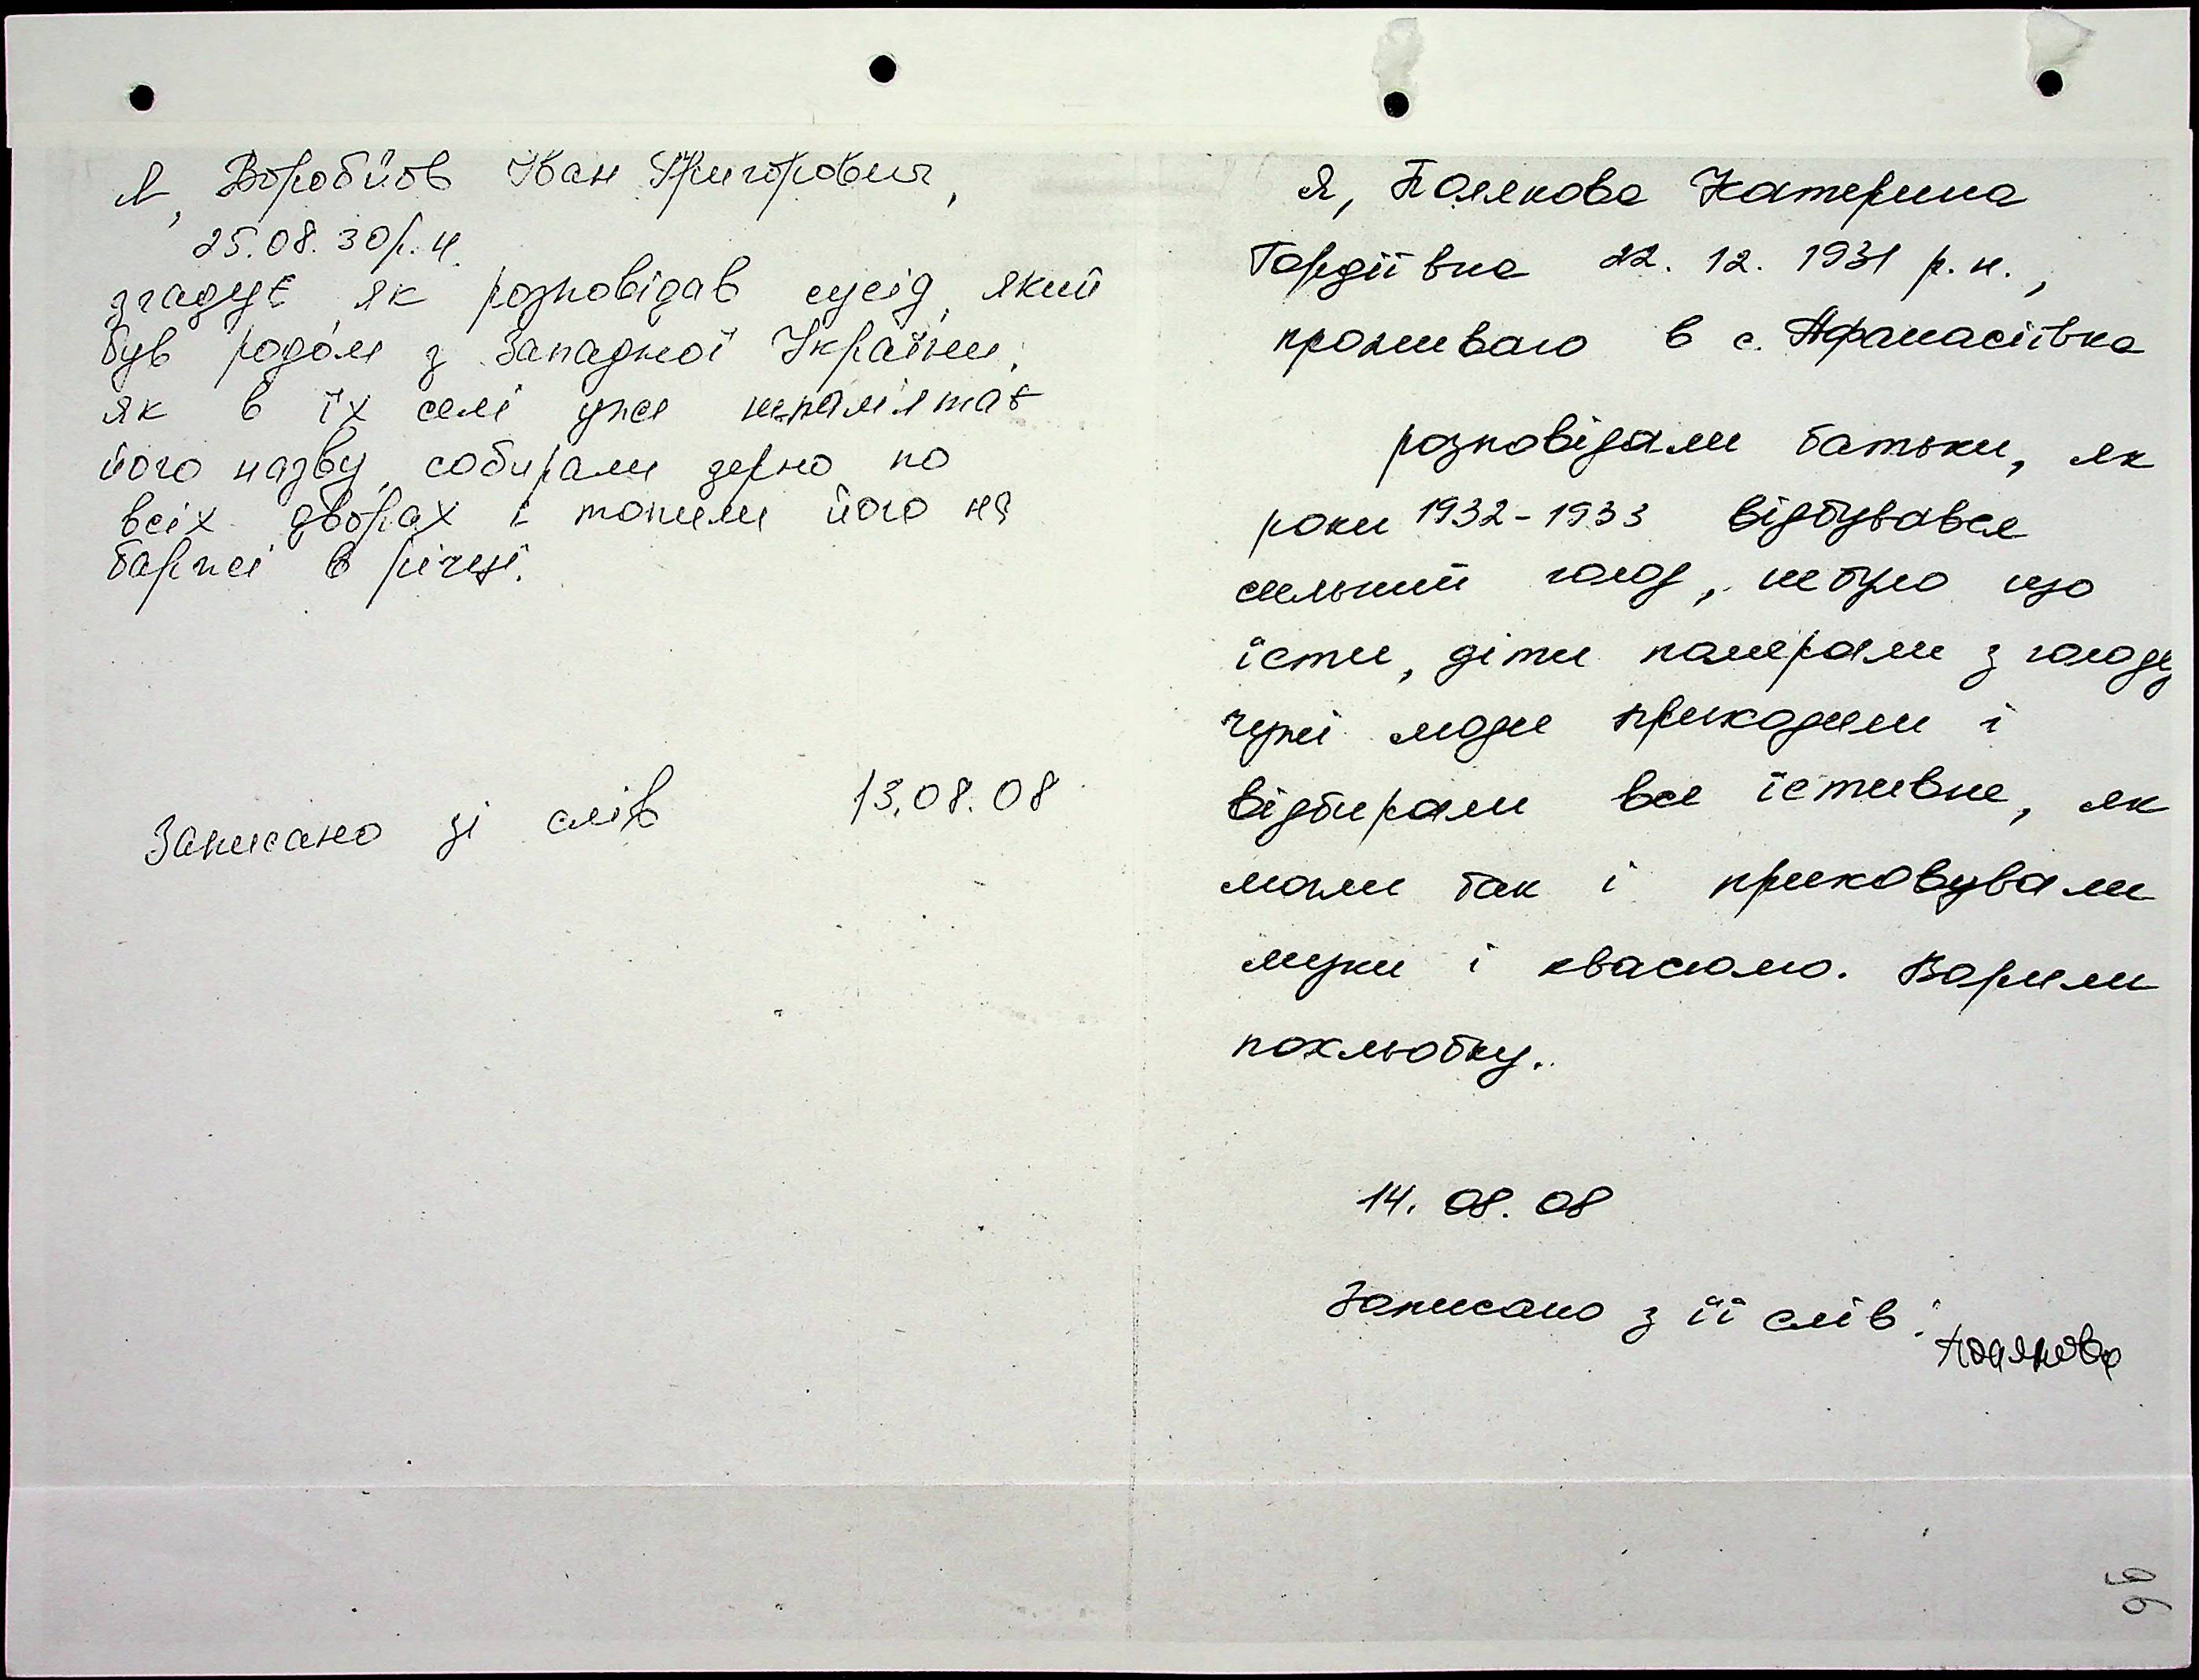 Я, Воробйов Іван Григорович,
25.08.30р.н.
згадує як розповідав сусід, який
був родом з Западної України,
як в їх селі уже непамʼятає
його назву, собирали зерно по
всіх дворах і топили його на
баржі в річці.
Записано зі слів 13.08.08
Я, Полякова Катерина
Гордіївна 22.12.1931 р.н.,
проживаю в с. Афанасіївка
розповідали батьки, як
роки 1932-1933 відбувався
сильний голод, небуло що
їсти, діти помирали з голоду,
чужі люди приходили і
відбирали все їстивне, як
могли так і приховували
муки і квасолю. Варили
похльобку.
14.08.08
Записано з її слів:
Полякова
96